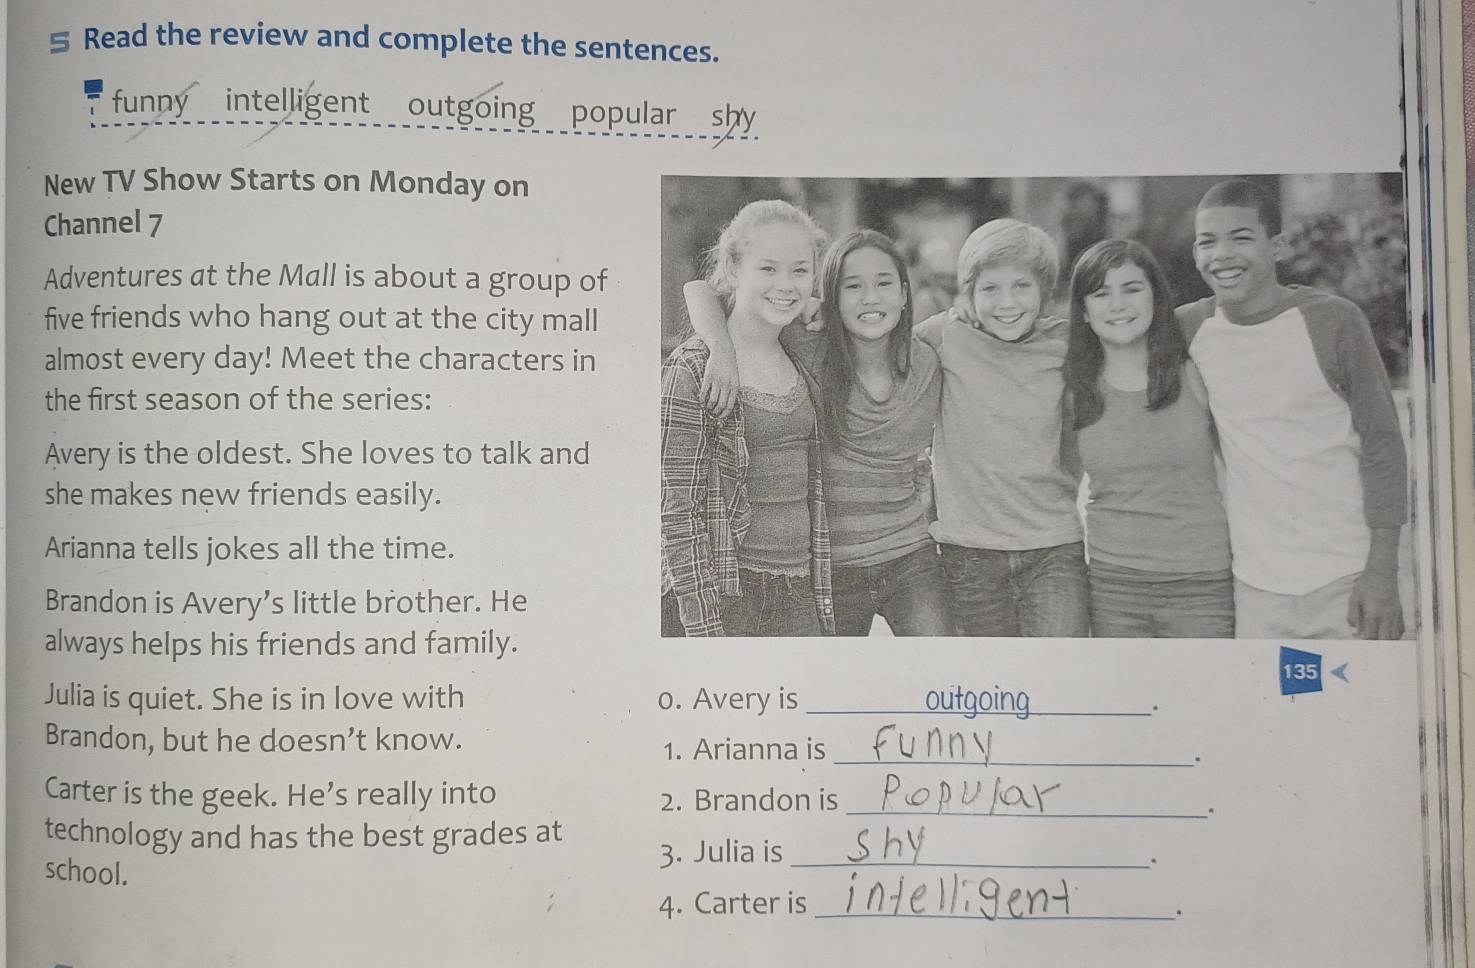 5 Read the review and complete the sentences.
funny intelligent outgoing popular shy
New TV Show Starts on Monday on
Channel 7
Adventures at the Mall is about a group of
five friends who hang out at the city mall
almost every day! Meet the characters in
the first season of the series:
Avery is the oldest. She loves to talk and
she makes new friends easily.
Arianna tells jokes all the time.
Brandon is Avery's little brother. He
always helps his friends and family.
Julia is quiet. She is in love with
Brandon, but he doesn't know.
Carter is the geek. He's really into
technology and has the best grades at
school.
135
0. Avery is outgoing.
1. Arianna is funny.
2. Brandon is Popular.
3. Julia is Shy.
4. Carter is intelligent.